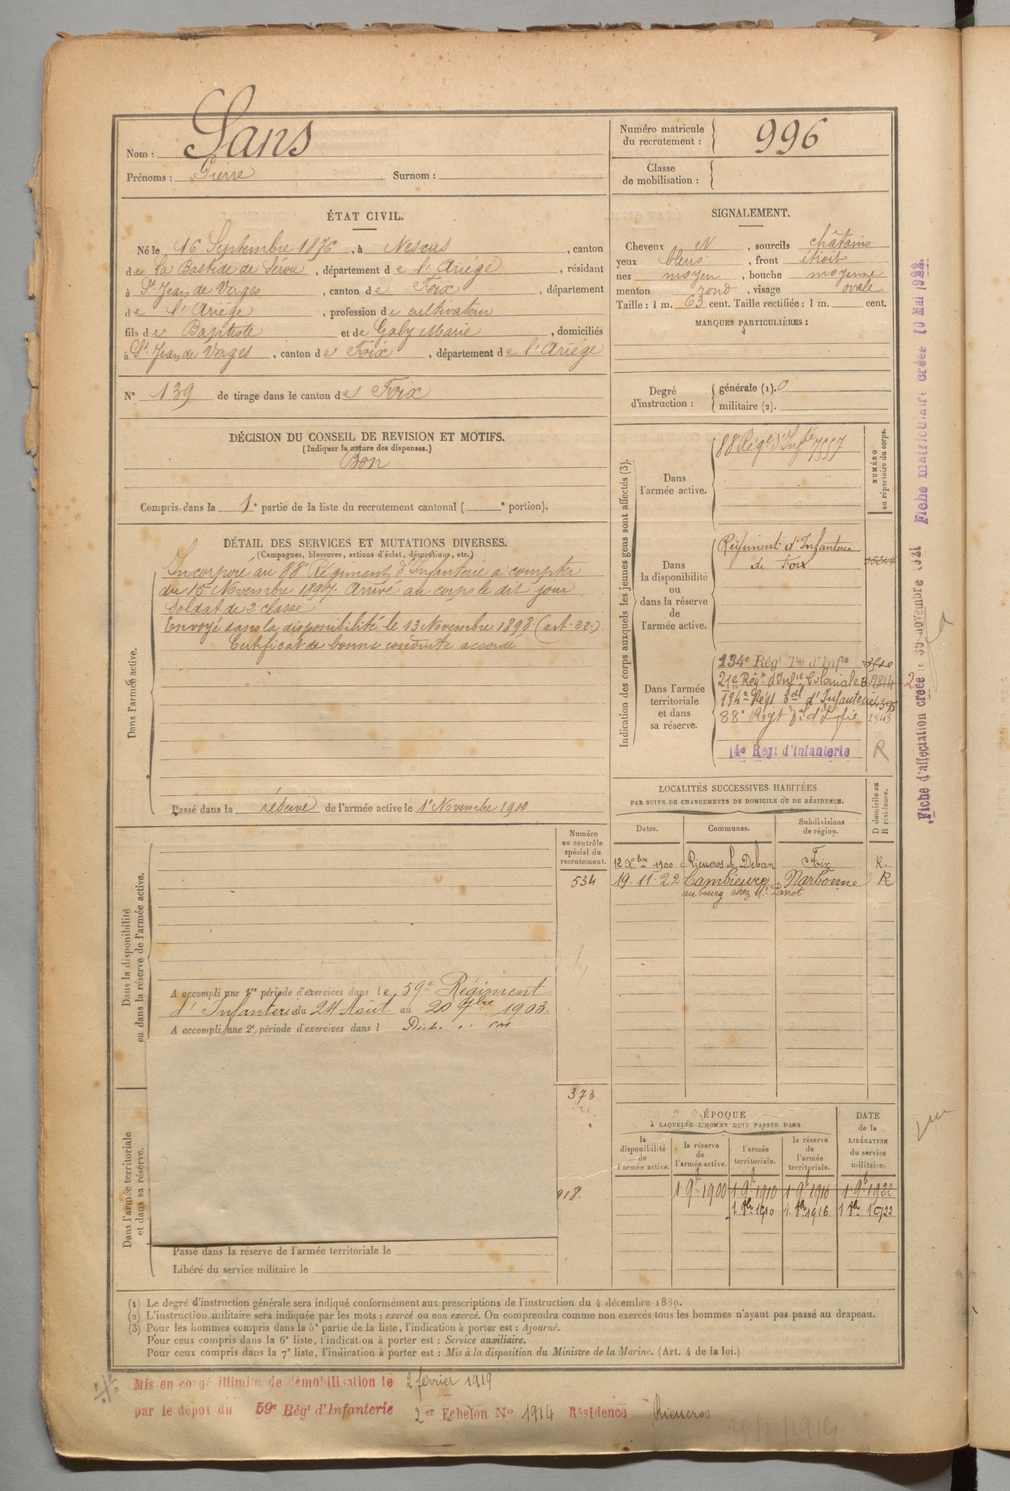 Nom : Sans
Prénoms : Pierre Surnom :
Numéro matricule du recrutement : 996
Classe de mobilisation :
ÉTAT CIVIL.
Né le 16 Septembre 1876, à Nescus, canton
de La Bastide de Sérou, département de l'Ariège, résidant
à St Jean de Verges, canton de Foix, département
de l'Ariège, profession de cultivateur
fils de Baptiste et de Galy Marie, domiciliés
à St Jean de Verges, canton de Foix, département de l'Ariège
N° 139 de tirage dans le canton de Foix
SIGNALEMENT.
Cheveux N, sourcils châtains
yeux bleus, front étroit
nez moyen, bouche moyenne
menton rond, visage ovale
Taille : 1 m. 63 cent. Taille rectifiée : 1 m. cent.
MARQUES PARTICULIÈRES :
Degré d'instruction : générale (1). 0
militaire (2).
DÉCISION DU CONSEIL DE REVISION ET MOTIFS.
(Indiquer la nature des dispenses.)
Bon
Compris dans la 1e partie de la liste du recrutement cantonal ( e portion).
DÉTAIL DES SERVICES ET MUTATIONS DIVERSES.
(Campagnes, blessures, actions d'éclat, décorations, etc.)
Dans l'armée active.
Incorporé au 88e Régiment d'Infanterie à compter
du 15 Novembre 1897. Arrivé au corps le dit jour
soldat de 2e classe
Envoyé dans la disponibilité le 13 Novembre 1898
Certificat de bonne conduite accordé
Passé dans la réserve de l'armée active le 1er Novembre 1900
Indication des corps auxquels les jeunes gens sont affectés (3).
NUMÉRO au répertoire du corps.
Dans l'armée active.
88 Régt d'Infie 7557
Dans la disponibilité ou dans la réserve de l'armée active.
Régiment d'Infanterie
de Foix
Dans l'armée territoriale et dans sa réserve.
134e Régt Tal d'Infie
21e Régt d'Infie Coloniale
194e Régt Tal d'Infanterie
88e Régt Tal d'Infie
14e Régt d'Infanterie R
Fiche d'affectation créée
Fiche matriculaire créée 10 Mai
LOCALITÉS SUCCESSIVES HABITÉES
PAR SUITE DE CHANGEMENTS DE DOMICILE OU DE RÉSIDENCE.
Dates. Communes. Subdivisions de région. D domicile ou R résidence.
12 Xbre 1900 Rieucros Foix R.
19-11-22 Cambieure Narbonne R
au bourg chez Mr
Numéro au contrôle spécial du recrutement.
534
Dans la disponibilité ou dans la réserve de l'armée active.
A accompli une 1re période d'exercices dans le 59e Régiment
d'Infanterie du 24 Août au 20 7bre 1903.
A accompli une 2e période d'exercices dans l
373
918.
Dans l'armée territoriale et dans sa réserve.
Passé dans la réserve de l'armée territoriale le
Libéré du service militaire le
ÉPOQUE
À LAQUELLE L'HOMME DOIT PASSER DANS
la disponibilité de l'armée active. la réserve de l'armée active. l'armée territoriale. la réserve de l'armée territoriale. DATE de la LIBÉRATION du service militaire.
1 9b 1900 1 9b 1910 1 9b 1916 1 9b 1922
1 8bre 1910 1 8bre 1916 1 8bre 1922
(1) Le degré d'instruction générale sera indiqué conformément aux prescriptions de l'instruction du 4 décembre 1889.
(2) L'instruction militaire sera indiquée par les mots : exercé ou non exercé. On comprendra comme non exercés tous les hommes n'ayant pas passé au drapeau.
(3) Pour les hommes compris dans la 5e partie de la liste, l'indication à porter est : Ajourné.
Pour ceux compris dans la 6e liste, l'indication à porter est : Service auxiliaire.
Pour ceux compris dans la 7e liste, l'indication à porter est : Mis à la disposition du Ministre de la Marine. (Art. 4 de la loi.)
Mis en congé illimité de démobilisation le 2 février 1919
par le dépôt du 59e Régt d'Infanterie 2e Echelon N° 1914 Résidence Rieucros